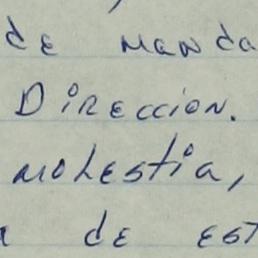 de manda
Direccion.
molestia,
de est